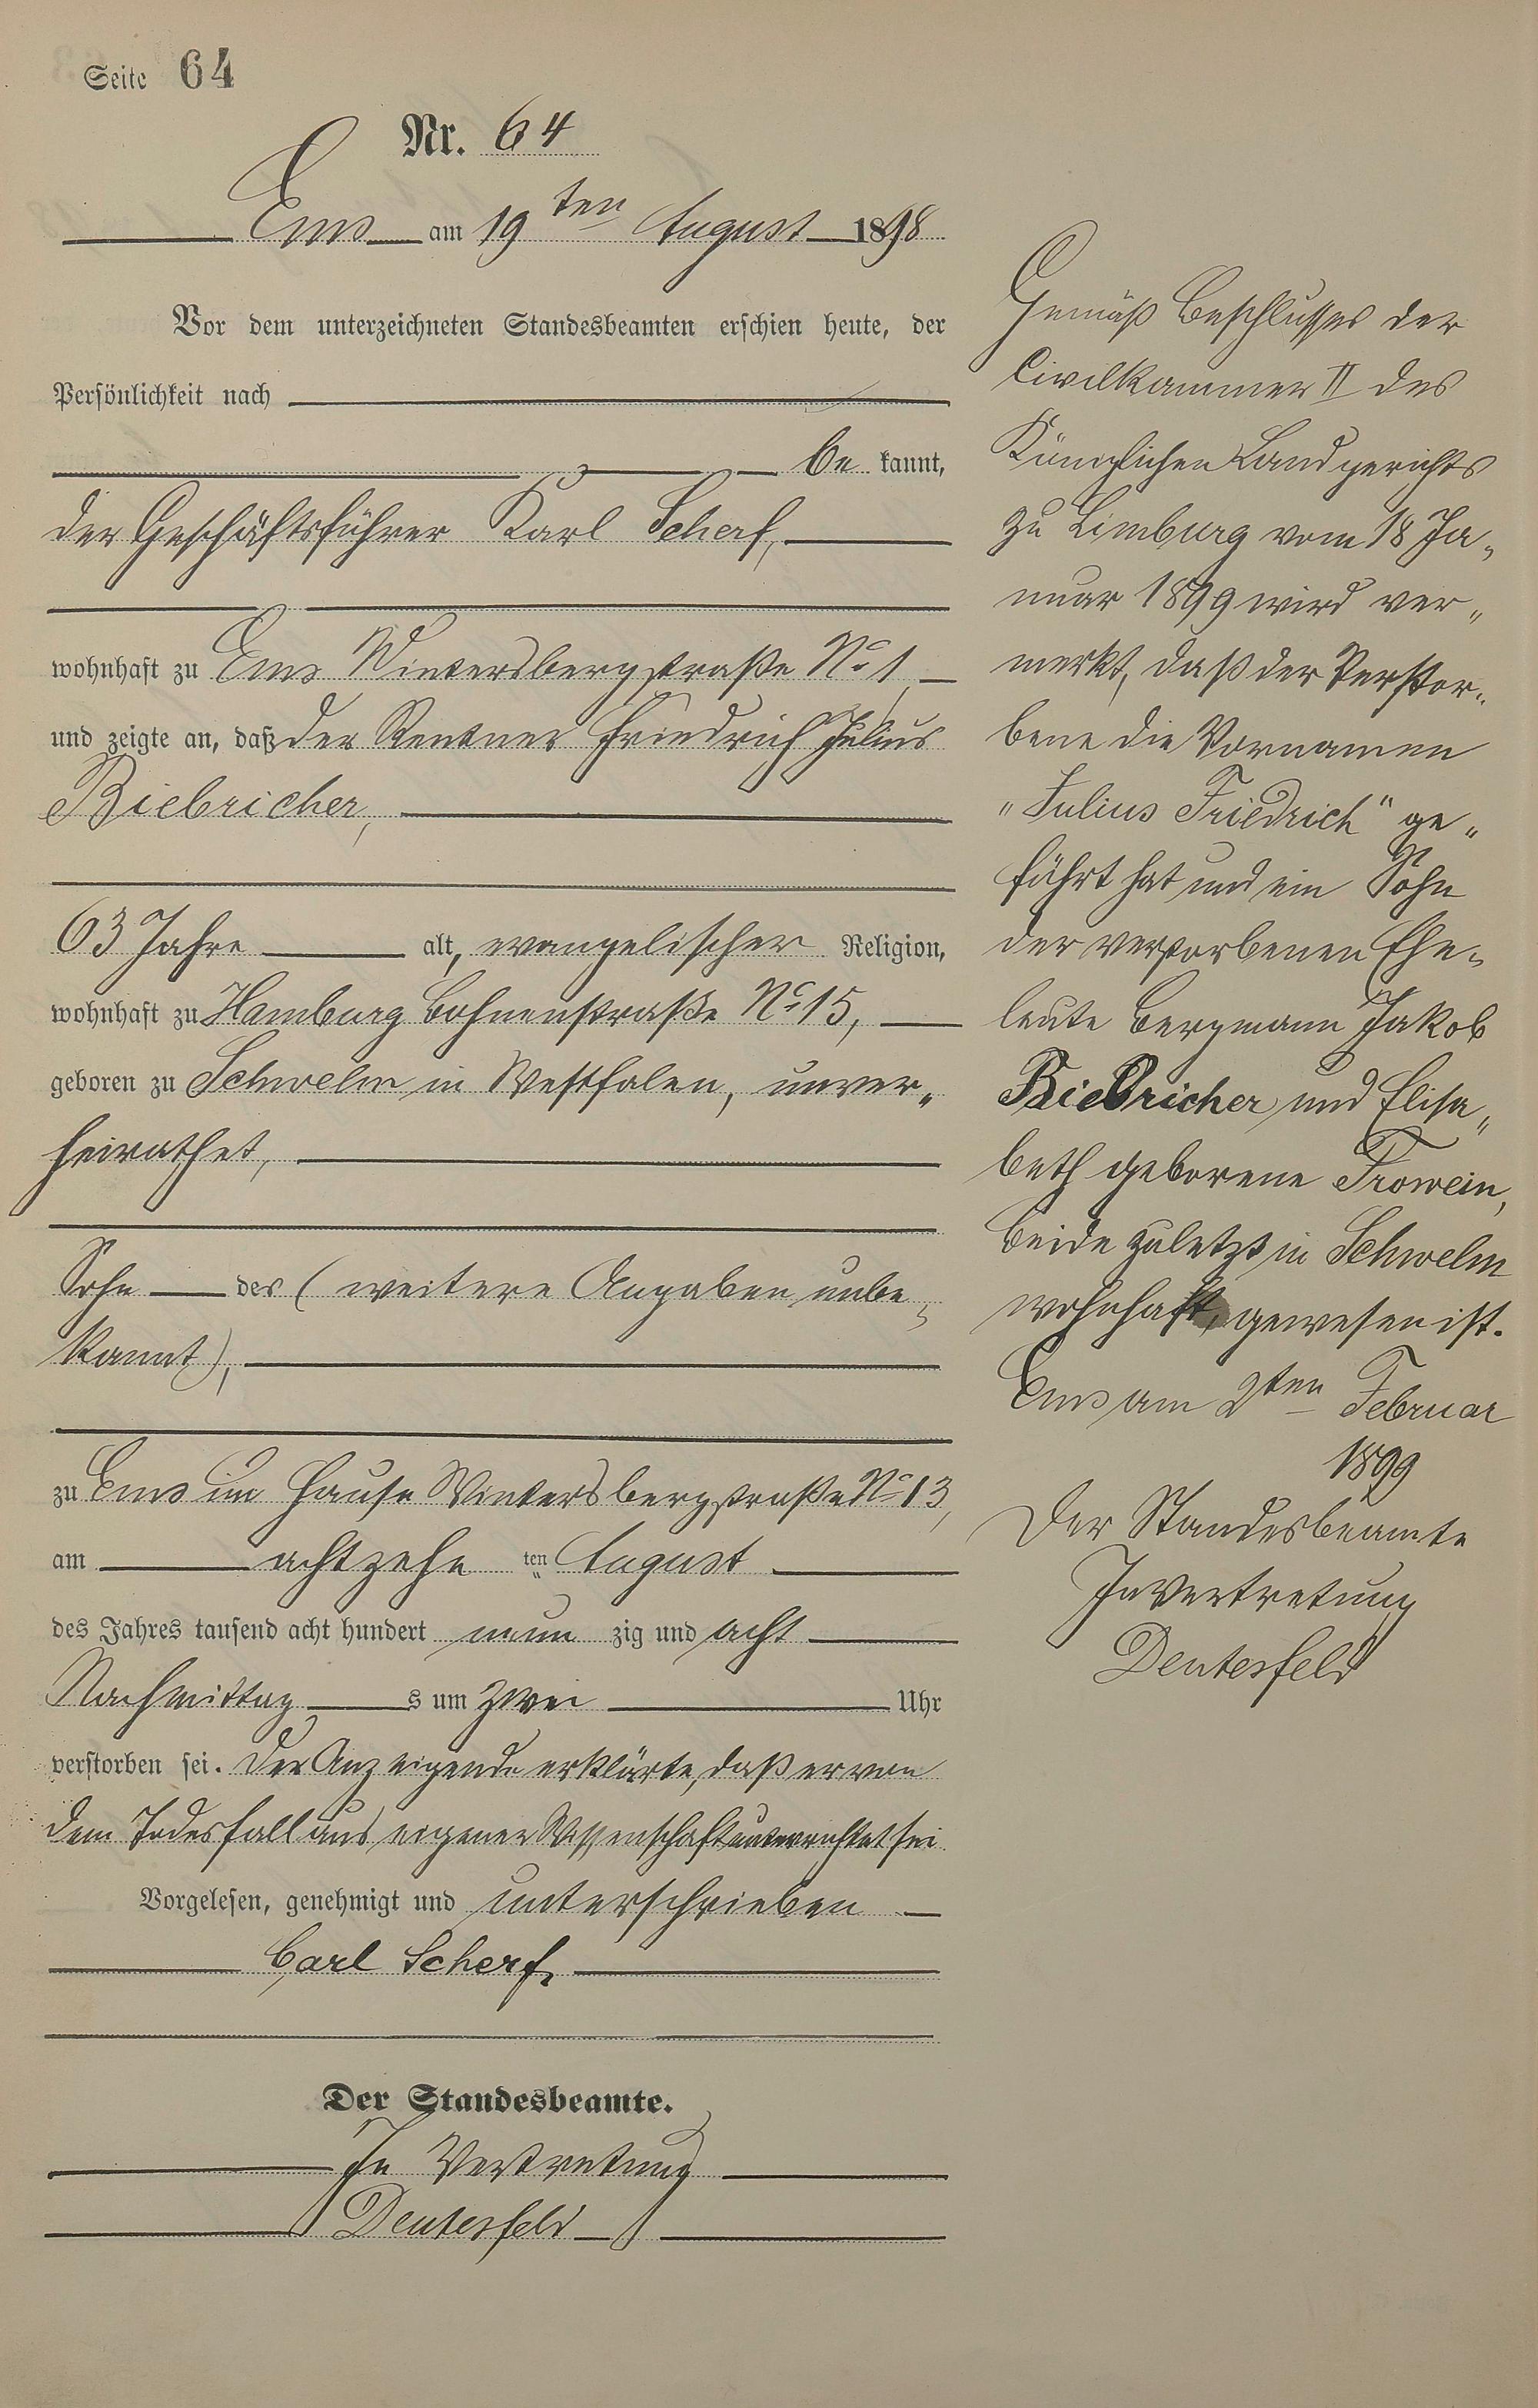 Seite 64
Nr. 64
Ems am 19ten August 1898
Vor dem unterzeichneten Standesbeamten erschien heute, der
Persönlichkeit nach
be kannt,
der Geschäftsführer Karl Scherf,
wohnhaft zu Ems Wintersbergstraße No 1
und zeigte an, daß der Rentner Friedrich Julius
Biebricher,
63 Jahre alt, evangelischer Religion,
wohnhaft zu Hamburg Bohnenstraße No 15,
geboren zu Schwelm in Westfalen, unver„
heirathet,
Sohn des (weitere Angaben unbe„
kannt),
zu Ems im Hause Wintersbergstraße No 13,
am achtzehn ten August
des Jahres tausend acht hundert neun zig und acht
Nachmittag s um zwei Uhr
verstorben sei. Der Anzeigende erklärte, daß er von
dem Todesfall aus eigener Wissenschaft unterrichtet sei.
Vorgelesen, genehmigt und unterschrieben
Carl Scherf,
Der Standesbeamte.
In Vertretung
Deutesfeld
Gemäß Beschlusses der
Civilkammer II des
Königlichen Landgerichts
zu Limburg vom 18 Ja„
nuar 1899 wird ver„
merkt, daß der Verstor„
bene die Vornamen
„Julius Friedrich“ ge„
führt hat und ein Sohn
der verstorbenen Ehe„
leute Bergmann Jakob
Biebricher und Elisa„
beth geborene Frowein,
beide zuletzt in Schwelm
wohnhaft, gewesen ist.
Ems am 2ten Februar
1899
Der Standesbeamte
In Vertretung
Deutesfeld